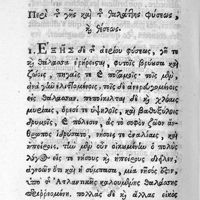 Περὶ τῆς γῆς καὶ τῆς θαλάττης φύσεως,
καὶ θέσεως.
1. ΕΞΗΣ δὲ τῆς ἀερίου φύσεως, γῆ τε
καὶ θάλασσα ἐρήρεισται, φυτοῖς βρύουσα καὶ
ζώοις, πηγαῖς τε καὶ ποταμοῖς· τοῖς μὲν,
ἀνὰ γῆν ἑλιττομένοις, τοῖς δὲ ἀνερευγομένοις
εἰς θάλασσαν. πεποίκιλται δὲ καὶ χλόαις
μυρίαις, ὄρεσί τε ὑψηλοῖς, καὶ βαθυξύλοις
δρυμοῖς, καὶ πόλεσιν, ἃς τὸ σοφὸν ζῶον ὁ ἄν-
θρωπος ἱδρύσατο, νήσοις τε ἐναλίαις, καὶ
ἠπείροις. τὴν μὲν οὖν οἰκουμένην ὁ πολὺς
λόγος εἴς τε νήσους καὶ ἠπείρους διεῖλεν,
ἀγνοῶν ὅτι καὶ ἡ σύμπασα, μία νῆσός ἐστιν,
ὑπὸ τῆς Ἀτλαντικῆς καλουμένης θαλάσσης
περιρρεομένη. πολλὰς δὲ καὶ ἄλλας εἰκὸς